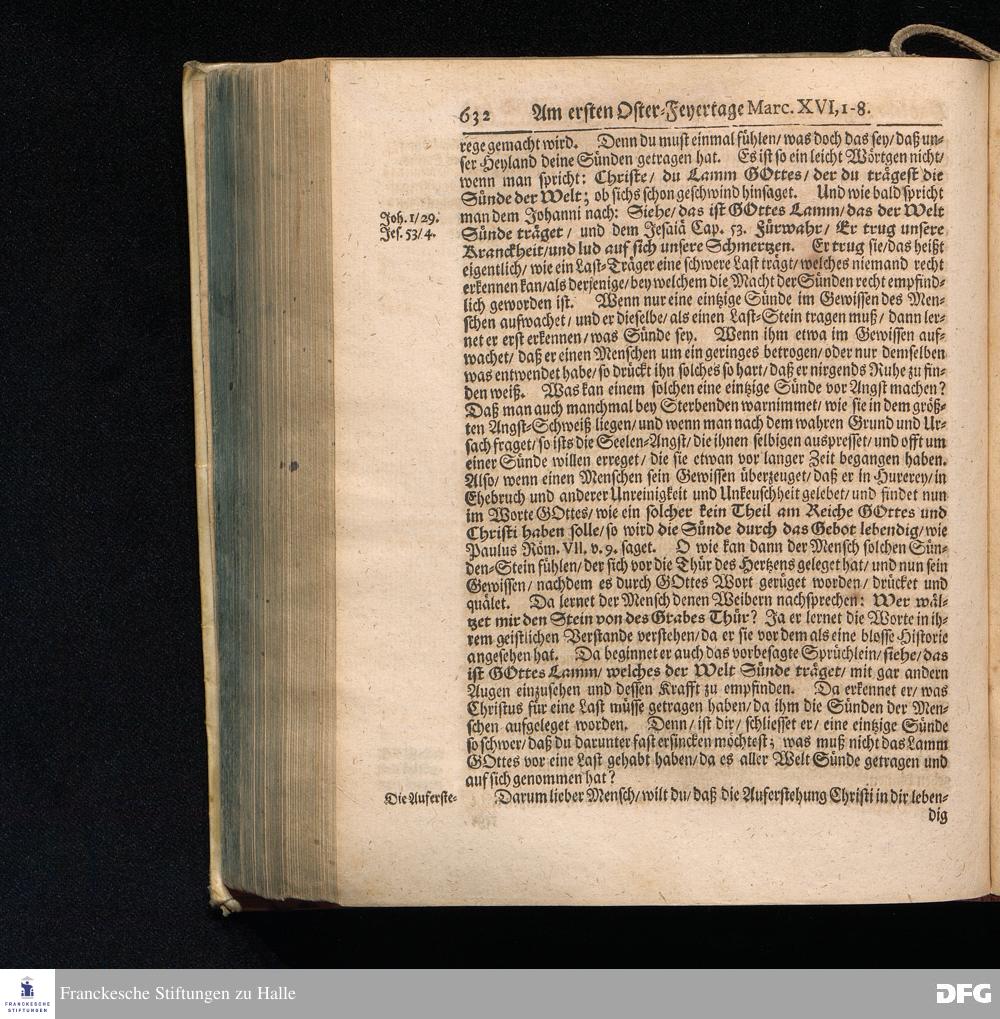 632 Am ersten Oster-Feyertage Marc. XVI, 1-8.
rege gemacht wird. Denn du must einmal fühlen/ was doch das sey/ daß un-
ser Heyland deine Sünden getragen hat. Es ist so ein leicht Wörtgen nicht/
wenn man spricht: Christe/ du Lamm GOttes/ der du trägest die
Sünde der Welt; ob sichs schon geschwind hinsaget. Und wie bald spricht
Joh. 1/29.
man dem Johanni nach: Siehe/ das ist GOttes Lamm/ das der Welt
Jes. 53/4.
Sünde träget/ und dem Jesaiä Cap. 53. Fürwahr/ Er trug unsere
Kranckheit/ und lud auf sich unsere Schmertzen. Er trug sie/ das heißt
eigentlich/ wie ein Last-Träger eine schwere Last trägt/ welches niemand recht
erkennen kan/ als derjenige/ bey welchem die Macht der Sünden recht empfind-
lich geworden ist. Wenn nur eine eintzige Sünde im Gewissen des Men-
schen aufwachet/ und er dieselbe/ als einen Last-Stein tragen muß/ dann ler-
net er erst erkennen/ was Sünde sey. Wenn ihm etwa im Gewissen auf-
wachet/ daß er einen Menschen um ein geringes betrogen/ oder nur demselben
was entwendet habe/ so drückt ihn solches so hart/ daß er nirgends Ruhe zu fin-
den weiß. Was kan einem solchen eine eintzige Sünde vor Angst machen?
Daß man auch manchmal bey Sterbenden warnimmet/ wie sie in dem größ-
ten Angst-Schweiß liegen/ und wenn man nach dem wahren Grund und Ur-
sach fraget/ so ists die Seelen-Angst/ die ihnen selbigen auspresset/ und offt um
einer Sünde willen erreget/ die sie etwan vor langer Zeit begangen haben.
Also/ wenn einen Menschen sein Gewissen überzeuget/ daß er in Hurerey/ in
Ehebruch und anderer Unreinigkeit und Unkeuschheit gelebet/ und findet nun
im Worte GOttes/ wie ein solcher kein Theil am Reiche GOttes und
Christi haben solle/ so wird die Sünde durch das Gebot lebendig/ wie
Paulus Röm. VII. v. 9. saget. O wie kan dann der Mensch solchen Sün-
den-Stein fühlen/ der sich vor die Thür des Hertzens geleget hat/ und nun sein
Gewissen/ nachdem es durch GOttes Wort gerüget worden/ drücket und
quälet. Da lernet der Mensch denen Weibern nachsprechen: Wer wäl-
tzet mir den Stein von des Grabes Thür? Ja er lernet die Worte in ih-
rem geistlichen Verstande verstehen/ da er sie vor dem als eine blosse Historie
angesehen hat. Da beginnet er auch das vorbesagte Sprüchlein/ siehe/ das
ist GOttes Lamm/ welches der Welt Sünde träget/ mit gar andern
Augen einzusehen und dessen Krafft zu empfinden. Da erkennet er/ was
Christus für eine Last müsse getragen haben/ da ihm die Sünden der Men-
schen aufgeleget worden. Denn/ ist dir/ schliesset er/ eine eintzige Sünde
so schwer/ daß du darunter fast ersincken möchtest; was muß nicht das Lamm
GOttes vor eine Last gehabt haben/ da es aller Welt Sünde getragen und
auf sich genommen hat?
Die Auferste-
Darum lieber Mensch/ wilt du/ daß die Auferstehung Christi in dir leben-
dig
FRANCKESCHE
STIFTUNGEN
Franckesche Stiftungen zu Halle
DFG